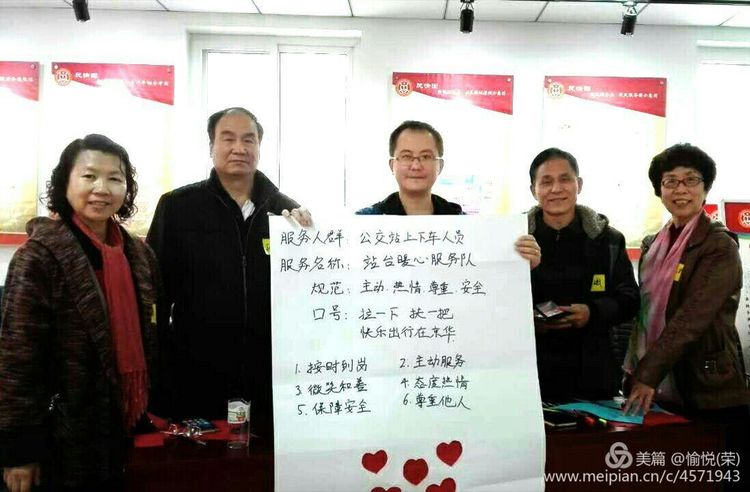 民情图
民情图
民情图
服务人群: 公交站上下车人员
服务名称: 站台暖心服务队
规范: 主动.热情.尊重.安全
口号: 拉一下 扶一把
快乐出行在京华
1.按时到岗 2.主动服务
3.微笑和善 4.态度热情
5.保障安全 6.尊重他人
美篇 @愉悦(荣)
www.meipian.cn/c/4571943